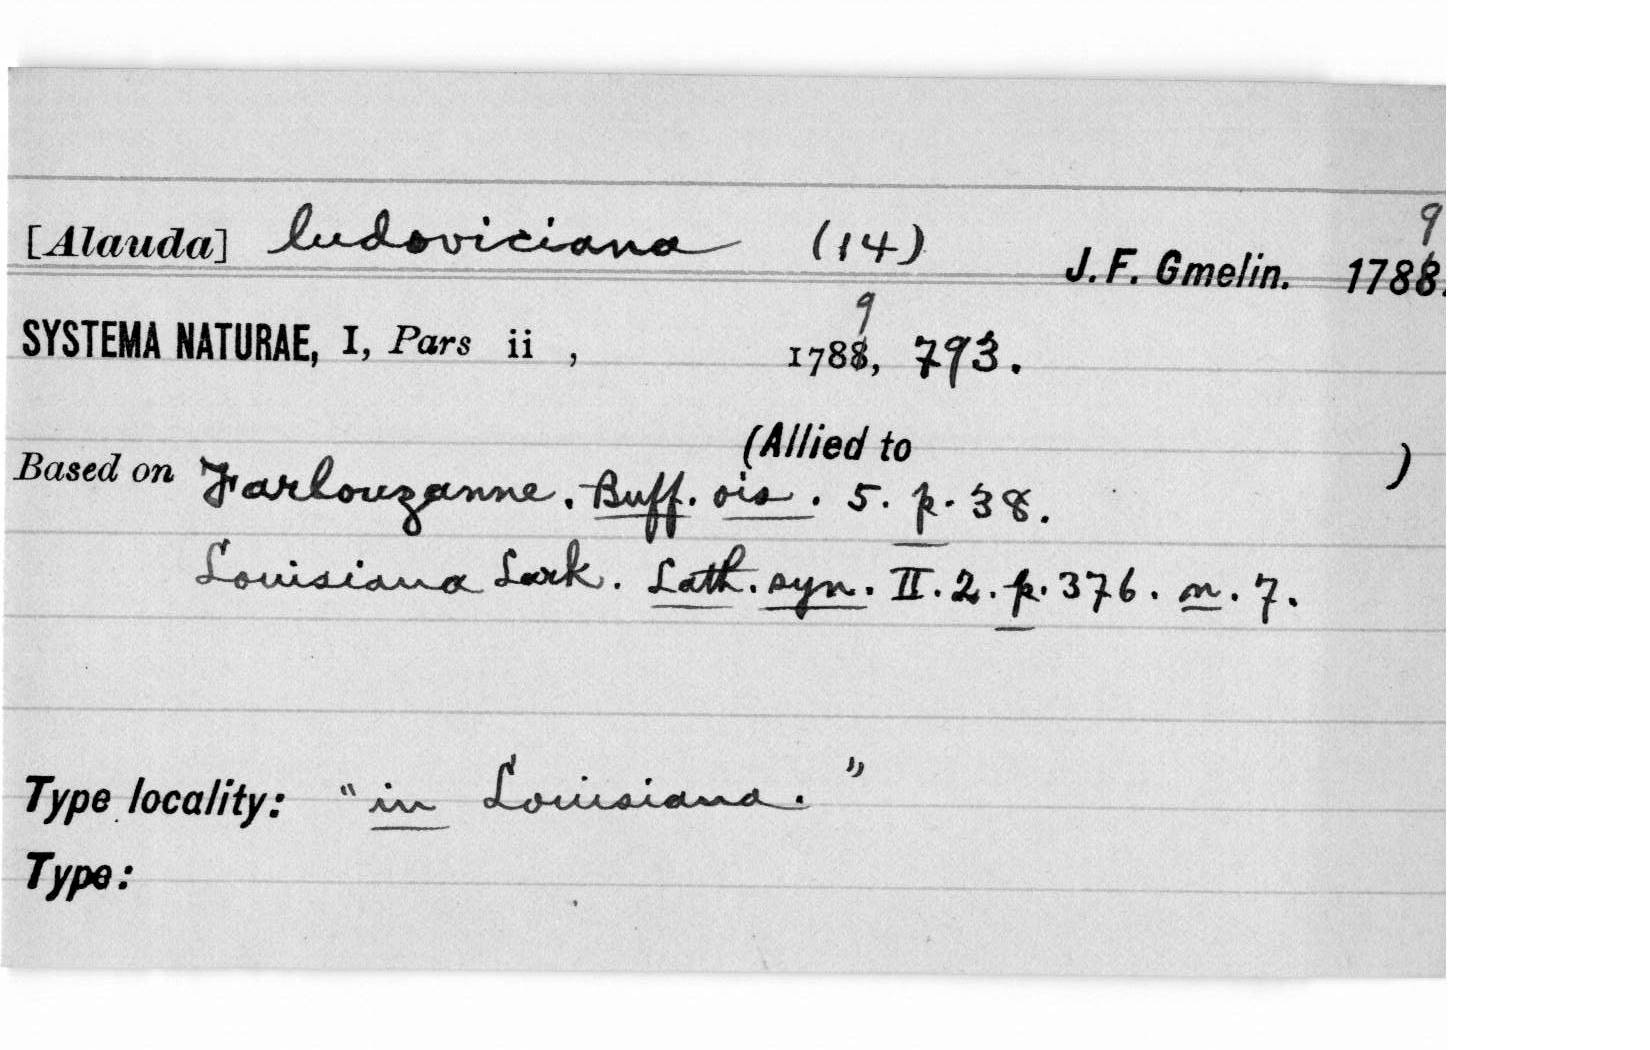 [Alauda] ludoviciana (14) J. F. Gmelin. 1789.
SYSTEMA NATURAE, I, Pars ii , 1789, 793.
(Allied to )
Based on Farlouzanne. Buff. ois. 5. p. 38.
Louisiana Lark. Lath. syn. II. 2. p. 376. n. 7.
Type locality: "in Louisiana."
Type: